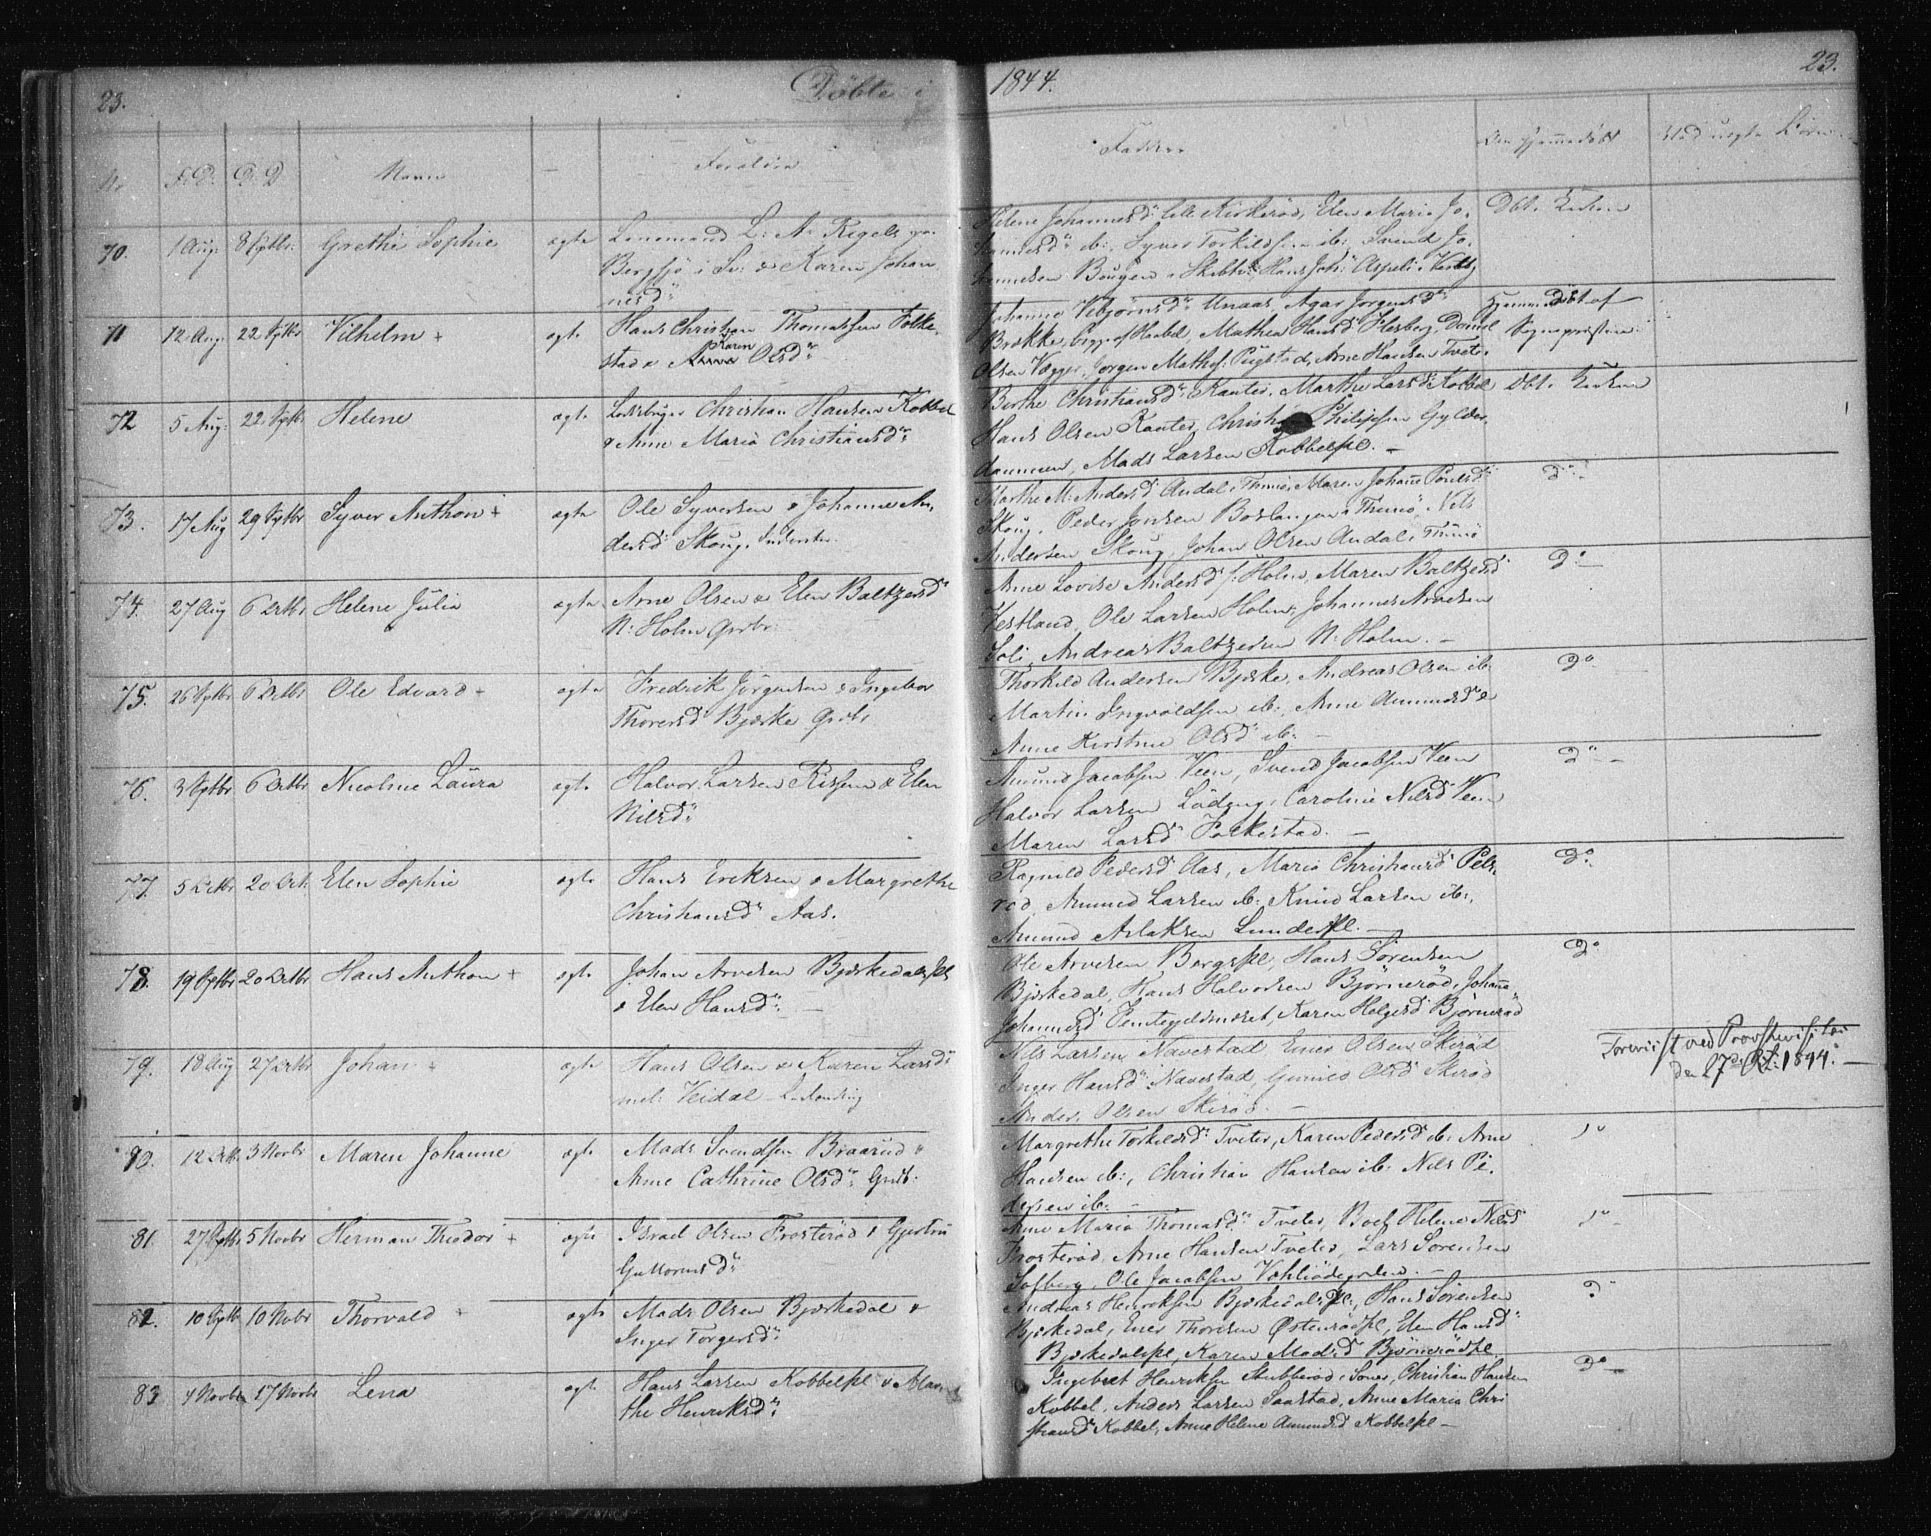 23.
Døbte i
1844.
23.
No
F.D.
D.D
Navn
Forældre
Faddere
Om hjemmedøbt
70.
1 Aug.
8 Septbr.
Grethe Sophie
ægte
Lensmand L: N: Rigels
Bergsjø i Sv: & Karen Johan
nesd:
Helene Johannesd: Lille Kirkerød, Elen Maria Jo.
hannesd: ib:, Syver Torkildsen ib:, Svend Jo.
hannesen Bougen i Skibtv: Hans Joh: Aspeli i
Dbt. Kirken
71
12 Aug.
22 Septbr
Vilhelm +
ægte
Hans Christian Thomassen Folke.
stad & Karen Olsd:
Johanne Vebjørnsd: Unaas, Agar Jørgensd:
Brække, begge af Haabøl, Mathea Hansd: Flesberg, Daniel
Olsen Vegger, Jørgen Maths: Pügstad, Arne Hansen Tveter
Hjemmedøbt af
Sognepræsten
72
5 Aug.
22 Septbr
Helene
ægte
Christian Hansen Kobbel
& Anne Maria Christiansd:
Berthe Christiansd: Kanter, Marthe Larsd: Kobbel
Hans Olsen Kanter, Christian Philipsen Gylder,
dammen, Mads Larsen Kobbelspl. –
Dbt. Kirken
73.
17 Aug
29 Septbr
Syver Anthon +
ægte
Ole Syversen & Johanne An,
dersd: Skoug,
Marthe M: Andersd: Andal i Thunø, Maren Johane
Skoug, Peder Jensen Boslangen i Thunø, Nels
Andersen Skoug, Johan Olsen Andal i Thunø
Do –
74.
27 Aug
6 Octbr
Helene Julia
ægte
Arne Olsen & Elen Baltzersd:
N: Holm Grdbr
Anne Lovise Andersd: S: Holm, Maren Baltzersd:
Vestland, Ole Larsen Holm, Johannes Arvesen
Soli, Andreas Baltzersen N: Holm. –
Do –
75.
26 Septbr
6 Octbr
Ole Edvard +
ægte
Fredrik Jørgensen & Ingebor
Thoresd: Bjerke Grdbr
Thorkild Andersen Bjerke, Andreas Olsen ib.
Martin Ingvoldsen ib:, Anne Amundsd:
Anne Kirstine Olsd: ib: –
Do
76.
3 Septbr
6 Octbr
Nicoline Laura
ægte
Halvor Larsen Rissen & Elen
Nilsd:
Amund Jacobsen Veen, Svend Jacobsen Veen
Halvor Larsen Lødeng, Caroline Nilsd: Veen
Maren Larsd: Folkestad. –
Do –
77.
5 Octbr
20 Oct.
Elen Sophie
ægte
Hans Eriksen & Margrethe
Christiansd: Aas.
Ragnild Pedersd: Aas, Maria Christiansd: Pels,
rød, Amund Larsen ib: Knud Larsen ib:,
Amund Aslaksen Lunderpl. –
Do
78.
19 Septbr
20 Octbr
Hans Anthon +
ægte
Johan Arvesen Bjerkedalspl
& Elen Hansd: –
Ole Arvesen Bergspl, Hans Sørensen
Bjerkedal, Hans Halvorsen Bjørnerød, Johanne
Johannesd: Karen Helgesd: Bjørnerød
Do
79.
18 Aug
27 Octbr
Johan +
ægte
Hans Olsen & Karen Larsd:
mel: Veidal
Nils Larsen Navestad, Ener Olsen Skirød
Inger Hansd: Navestad, Gunild Olsd: Skirød
Anders Olsen Skirød. –
Foreviist ved Provstevisitasi
den 27de Oct: 1844. –
80.
12 Octbr.
3 Novbr
Maren Johanne
ægte
Mads Svendsen Braarud &
Anne Cathrine Olsd: Grdb:
Margrethe Torkildsd: Tveter, Karen Pedersd: ib: Arne
Hansen ib:, Christian Hansen ib: Nils Pe.
dersen ib: –
81.
27 Septbr
5 Novbr
Herman Theodor +
ægte
Israel Olsen Frosterød & Gjertru
Guttormsd:
Anne Maria Thomasd: Tveter, Boel Helene Nilsd:
Frosterød, Arne Hansen Tveter, Lars Sørensen
Solberg, Ole Jacobsen –
82.
10 Septbr
10 Novbr
Thorvald +
ægte
Mads Olsen Bjerkedal &
Inger Torgersd:
Andreas Henriksen Bjerkedalspl:, Hans Sørensen
Bjerkedal, Ener Thoresen Østenrødpl, Elen Hansd:
Bjerkedalspl, Karen Madsd: Bjørnerødpl.
83
4 Novbr
17 Novbr
Lena
ægte
Hans Larsen Kobbelpl & Mar,
the Henriksd:
Ingebret Henriksen Stubberød i Soner, Christian Hansen
Kobbel, Anders Larsen Saastad, Anne Maria Chri
stiansd: Kobbel, Anne Helene Amundsd: Kobbelpl –
Do –